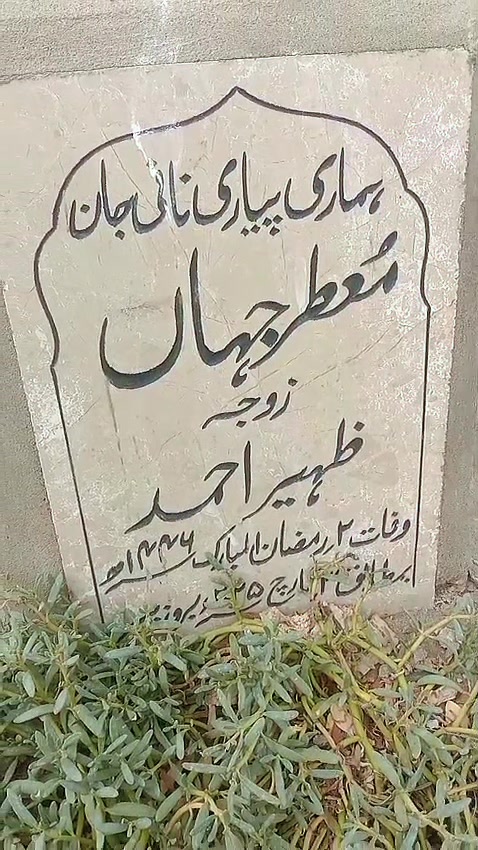 ہماری پیاری نانی جان
مُعطر جہاں
زوجہ
ظہیر احمد
وفات ۲ رمضان المبارک ۱۴۴۶ھ
بمطابق مارچ ۲۰۲۵ء بروز